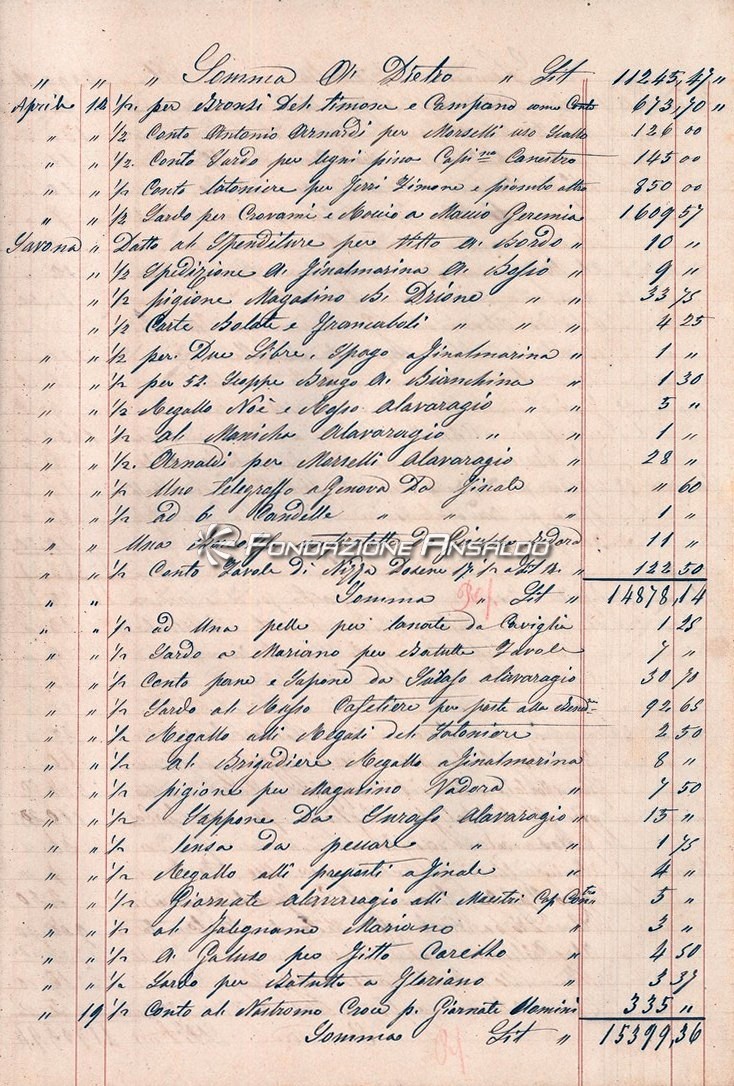 " " " Somma Di Dietro " Lit 11245,47 "
Aprile 14 1/2 per Bronzi del timone e Campana come Conto 673,70 "
" " 1/2 Conto Antonio Arnardi per Morselli uso Scallo 126 00
" " 1/2. Conto Sardo per legni pino Canestro 145 00
" " 1/2 Conto latoniere per ferri Timone e piombo 850 00
" " 1/2 Sardo per Crovami e Moccio a Maccio Geremia 1609 57
Savona " Datto al Spenditure per Vitto a Bordo " 10 "
" 1/2 Spedizione di Finalmarina di Bosio " 9 "
" 1/2 pigione Magasino Di Drione " " 33 75
" 1/2 Carte Bolate e Francoboli " " " 4 25
" " 1/2 per Due Libre, Spago a Finalmarina " 1 "
" " 1/2 per 52 Brugo di Bianchina " 1 30
" " 1/2 Regallo Noè e Rosso Alavaragio " " 5 "
" " 1/2 al Alavaragio " " 1 "
" " 1/2. Arnaldi per Morselli Alavaragio " 28 "
" " 1/2 Uno Telegraffo a Genova Da Finale " " 60
" " 1/2 ad 6 Candelle " " " 1 "
" " Una " 11 "
" " 1/2 Conto Tavole di Nizza Dosene 17 1/2 a 122 50
" " Somma " Lit " 14878,14
" " 1/2 ad Una pelle per da Caviglia 1 25
" " 1/2 Sardo a Mariano per Batutte Tavole 7 "
" " 1/2 Conto pane e Sapone da alavaragio 30 70
" " 1/2 Sardo al Rosso Cafetiere per poste alla 92 65
" " 1/2 Regallo alli Regasi del Latoniere 2 50
" " 1/2 al Brigadiere Regallo a Finalmarina 8 "
" " 1/2 pigione per Magasino Vadora " 7 50
" " 1/2 Sappone Da Alavaragio " 15 "
" " 1/2 lensa da pescare " " 1 75
" " 1/2 Regallo alli preposti a Finale " 4 "
" " 1/2 Giornate alavaragio alli Maestri Cap. " 5 "
" " 1/2 al Falegname Mariano " 3 "
" " 1/2 A Galuso per Fitto " 4 50
" " 1/2 Sardo per Batutte a Floriano " 3 37
" 19 1/2 Conto al Nostromo Croce p. Giornate Uomini 335 "
Somma Lit " 15399,36
FONDAZIONE ANSALDO